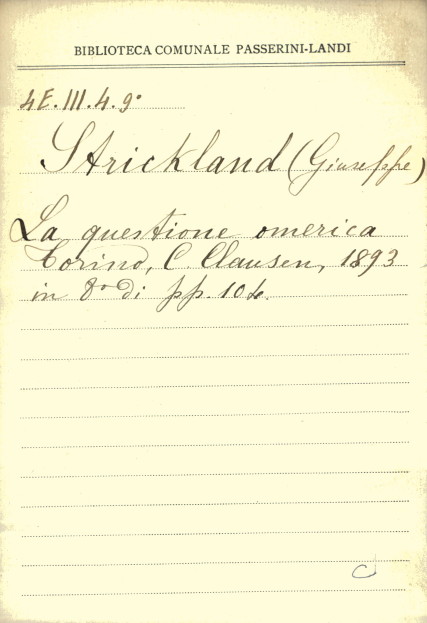 BIBLIOTECA COMUNALE PASSERINI-LANDI
4E.III.4.9°
Strickland (Giuseppe)
La questione omerica
Torino, C. Clausen, 1893
in 8° di pp. 104.
C